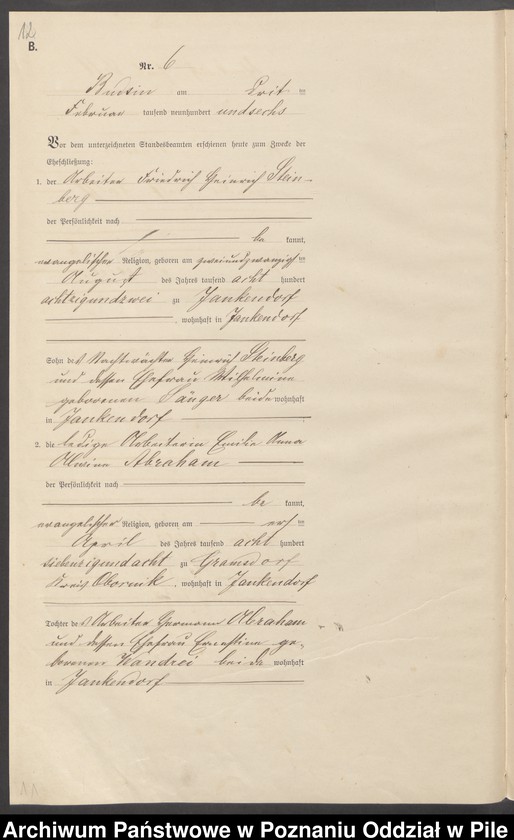 12
B.
Nr. 6
Budsin am Drit ten
Februar tausend neunhundert undsechs
Vor dem unterzeichneten Standesbeamten erschienen heute zum Zwecke der
Eheschließung:
1. der Arbeiter Friedrich Heinrich Stein-
berg
der Persönlichkeit nach
be kannt,
evangelischer Religion, geboren am zweiundzwanzigsten
August des Jahres tausend acht hundert
achtzigundzwei zu Jankendorf
, wohnhaft in Jankendorf
Sohn des Nachtwächter Heinrich Steinberg
und dessen Ehefrau Wilhelmine
geborenen Sänger beide wohnhaft
in Jankendorf
2. die ledige Arbeiterin Emilie Anna
Alwine Abraham
der Persönlichkeit nach
be kannt,
evangelischer Religion, geboren am ersten
April des Jahres tausend acht hundert
siebenzigundacht zu Gramsdorf
Kreis Obornik, wohnhaft in Jankendorf
Tochter des Arbeiter Hermann Abraham
und dessen Ehefrau Ernestine ge-
borenen Wandrei beide wohnhaft
in Jankendorf
11
Archiwum Państwowe w Poznaniu Oddział w Pile